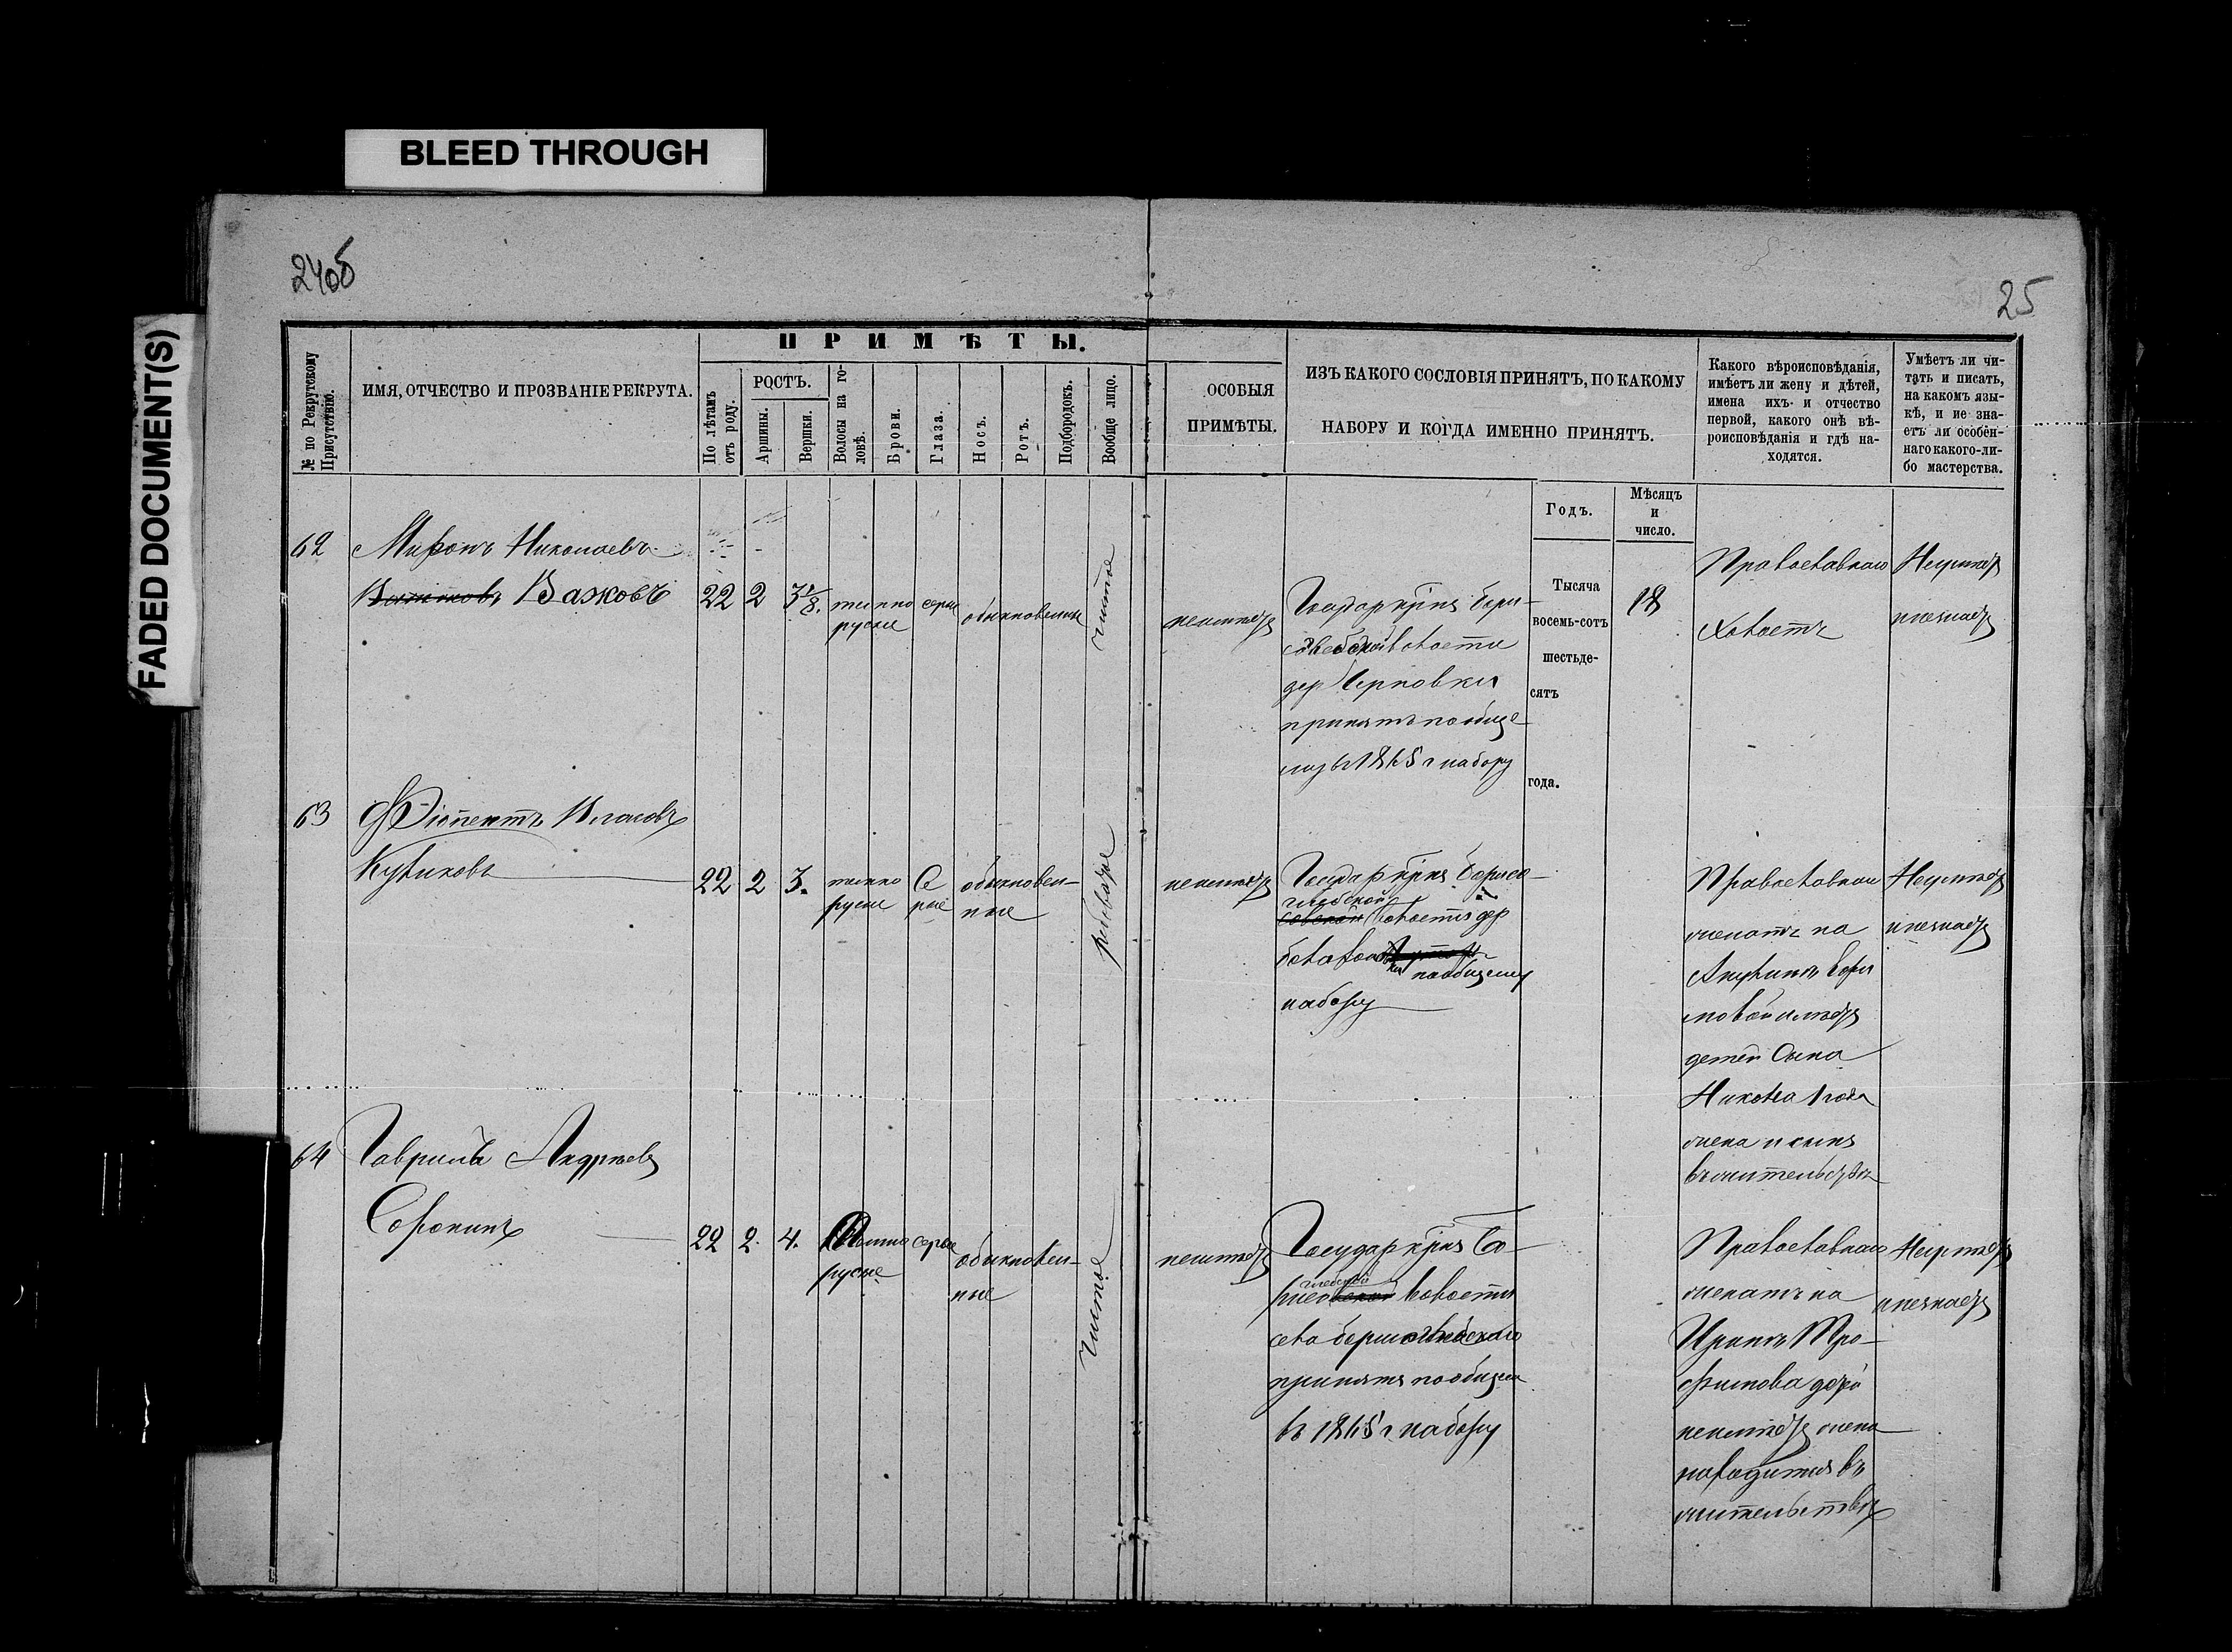 BLEED THROUGH
FADED DOCUMENT(S)
24об
25
№ по Рекрутскому Присутствію.
ИМЯ, ОТЧЕСТВО И ПРОЗВАНІЕ РЕКРУТА.
ПРИМѢТЫ.
По лѣтамъ отъ роду.
РОСТЪ.
Аршины.
Вершки.
Волосы на го-
ловѣ.
Брови.
Глаза.
Носъ.
Ротъ.
Подбородокъ.
Вообще лицо.
ОСОБЫЯ
ПРИМѢТЫ.
ИЗЪ КАКОГО СОСЛОВІЯ ПРИНЯТЪ, ПО КАКОМУ
НАБОРУ И КОГДА ИМЕННО ПРИНЯТЪ.
Какого вѣроисповѣданія,
имѣетъ ли жену и дѣтей,
имена ихъ и отчество
первой, какого онѣ вѣ-
роисповѣданія и гдѣ на-
ходятся.
Умѣетъ ли чи-
тать и писать,
на какомъ язы-
кѣ, и не зна-
етъ ли особен-
наго какого-ли-
бо мастерства.
Годъ.
Мѣсяцъ
и
число.
Тысяча
восемь-сотъ
шестьде-
сятъ
года.
62
Миронъ Николаевъ
Важковъ
22 2 3 1/8.
темно
русые
серые
обыкновенные
чистое
неимѣетъ
Государ крнъ Бори-
соглебской волости
дер Черновки
принятъ пообще
му въ 1865 г набору
18
Православнаго
Холостъ
Неумѣетъ
инезнаетъ
63
Власовъ
Куликовъ
22 2 3.
темно
русые
Се
рые
обыкновен-
ные
рябоватое
неимѣетъ
Государ крнъ Борисо-
глебской
волости дер
пообщему
набору
Православнаго
женатъ на
Акулинѣ Ефи
мовой имѣетъ
детей Сына
Никола 1 года
жена и сынъ
вжительствѣ
Неумѣетъ
инезнаетъ
64
Гаврилъ Андреевъ
Сорокинъ
22 2. 4.
темно
русые
серые
обыкновен-
ные
Чистое
неимѣетъ
Государ крнъ Бо-
глебской
рисо волости
села Борисоглебскаго
принятъ пообщему
въ 1865 г. набору
Православнаго
женатъ на
Иринѣ Тро-
фимова детей
неимѣетъ жена
находится въ
жительствѣ
Неумѣетъ
инезнаетъ